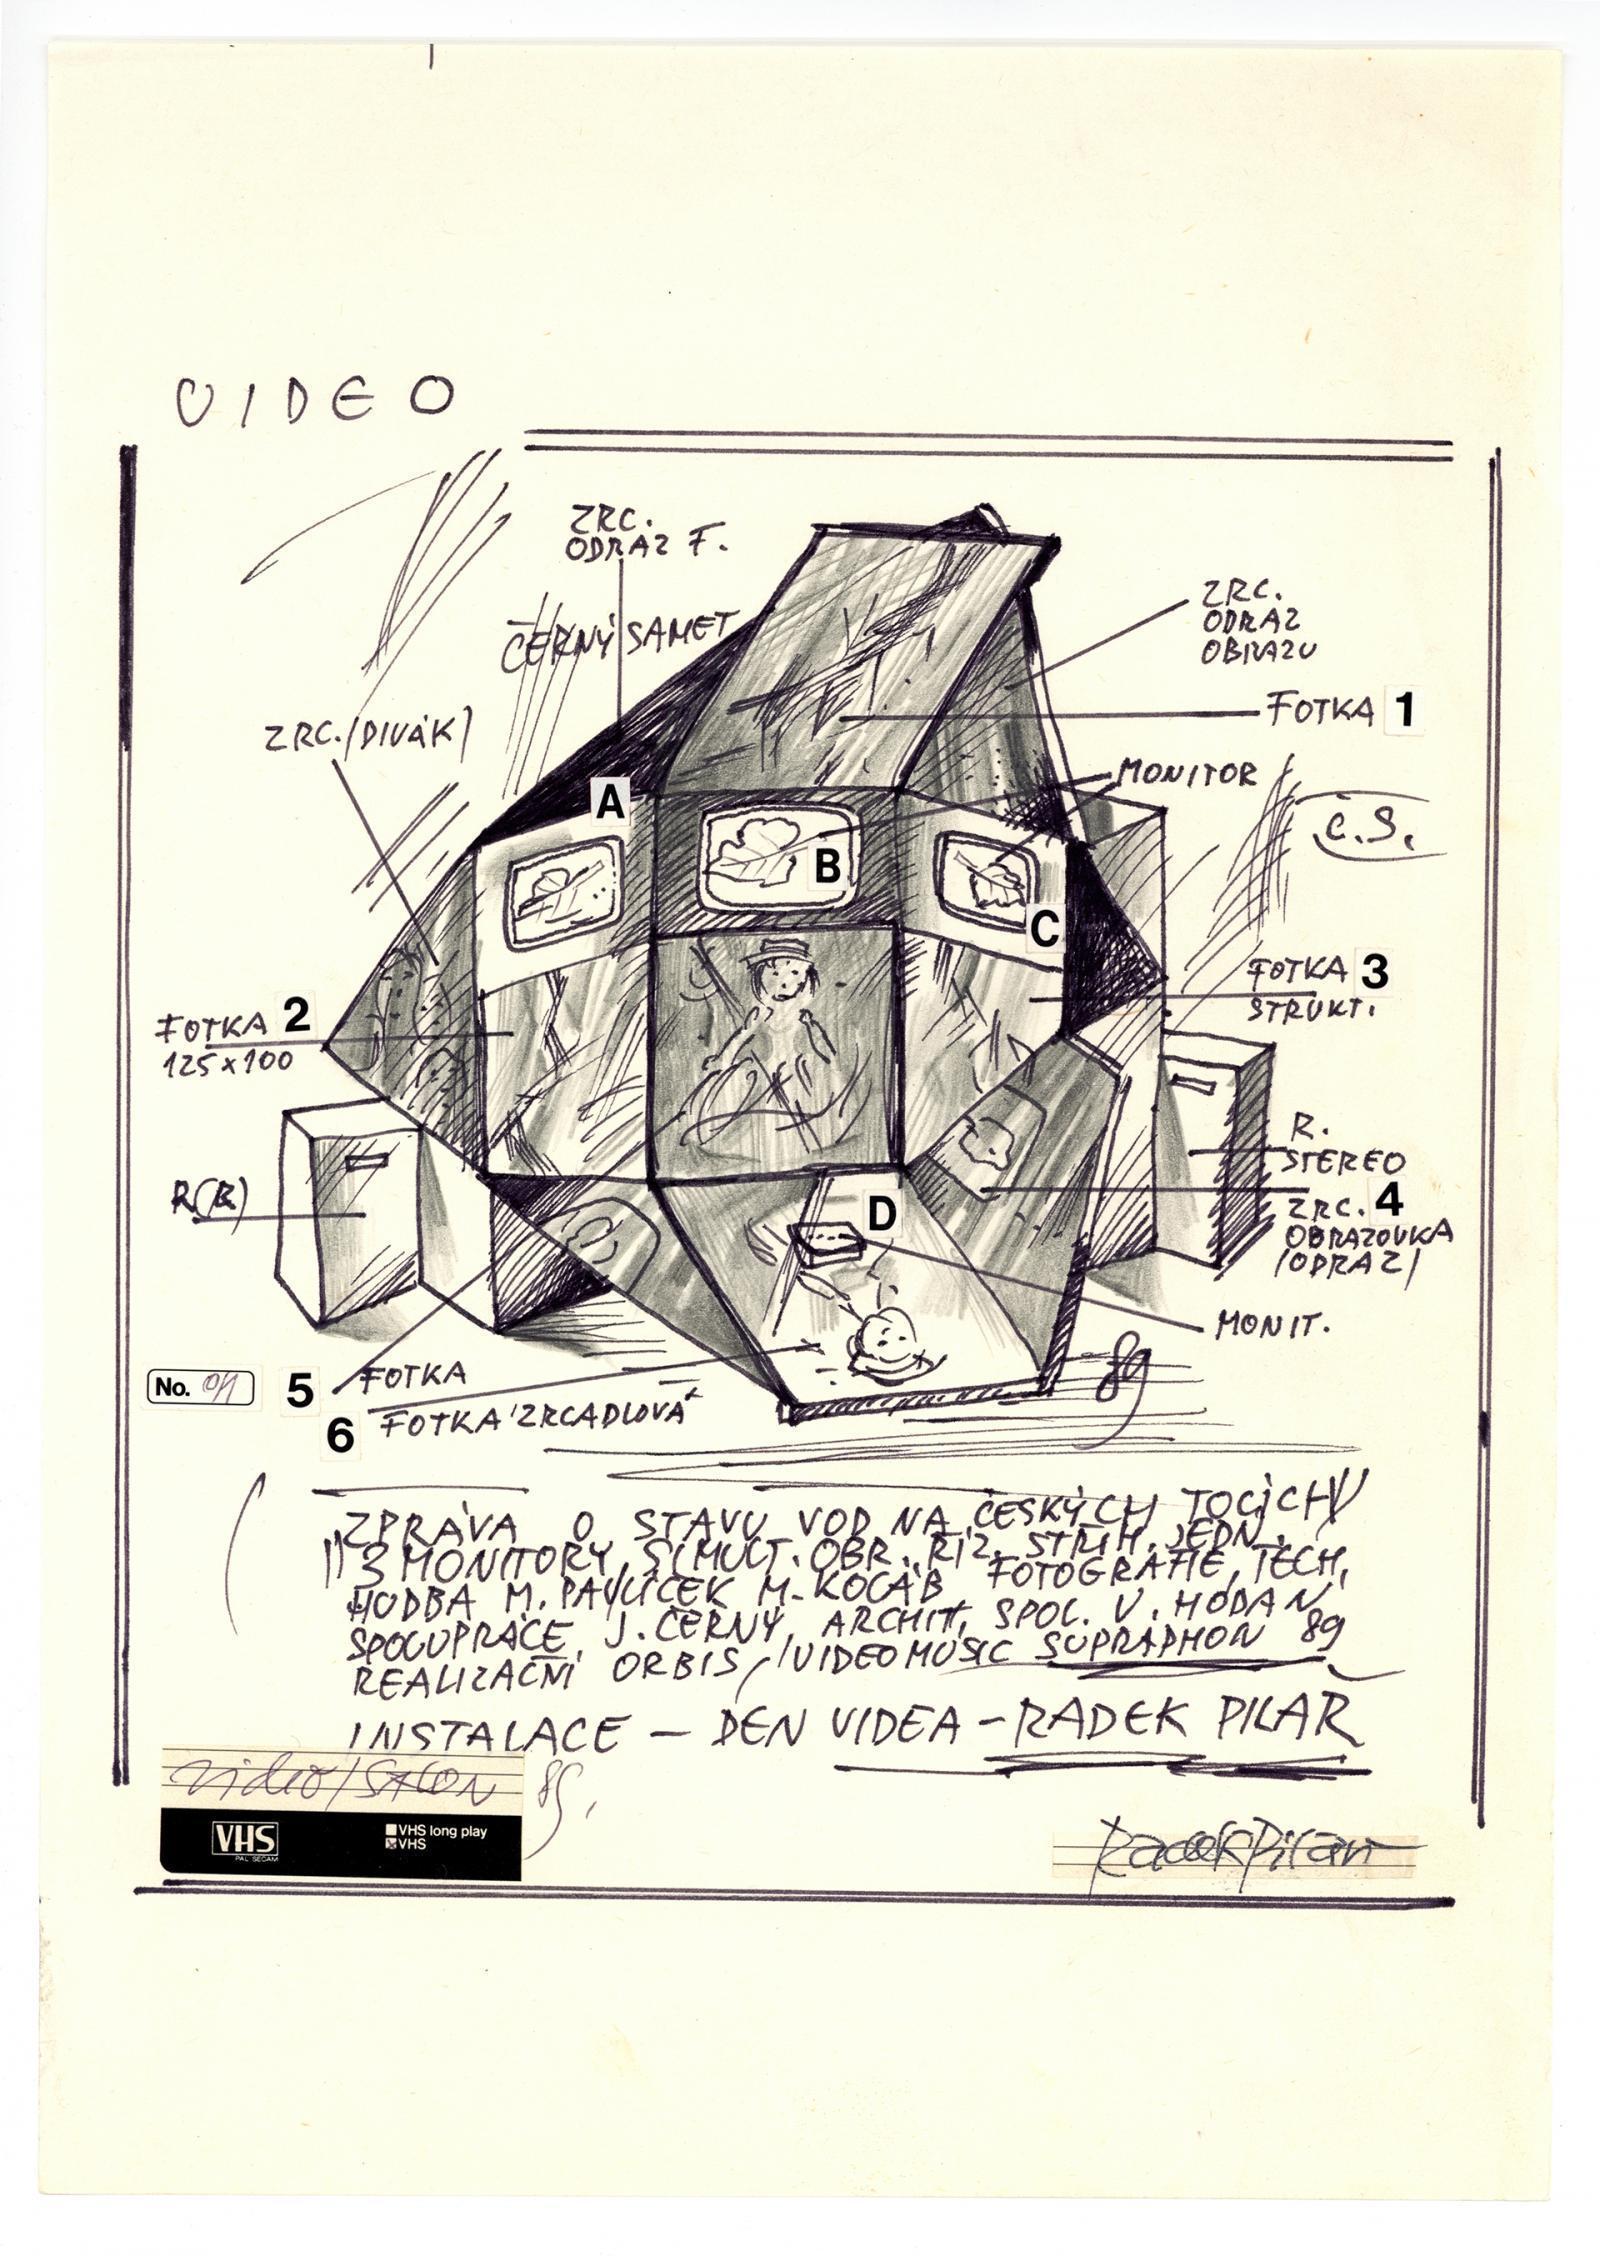 VIDEO
ZRC.
ODRAZ F.
ČERNÝ SAMET
ZRC. (DIVÁK)
ZRC.
ODRAZ
OBRAZU
FOTKA 1
MONITOR
Č.S.
A
B
C
FOTKA 2
125x100
FOTKA 3
STRUKT.
R(B)
R.
STEREO
ZRC. 4
OBRAZOVKA
(ODRAZ)
D
MONIT.
89
No. 01
5 FOTKA
6 FOTKA ZRCADLOVÁ
ZPRÁVA O STAVU VOD NA ČESKÝCH TOCÍCH
3 MONITORY, SIMULT. OBR. ŘÍZ. STŘIH, JEDN.
HUDBA M. PAVLÍČEK M. KOCÁB FOTOGRAFIE, TECH.
SPOLUPRÁCE J. ČERNÝ, ARCHIT. SPOL. V. HODAN,
REALIZAČNÍ ORBIS, /VIDEOMUSIC SUPRAPHON 89
INSTALACE - DEN VIDEA - RADEK PILAŘ
video/SALON 89.
VHS
PAL SECAM
VHS long play
VHS
Radek Pilař